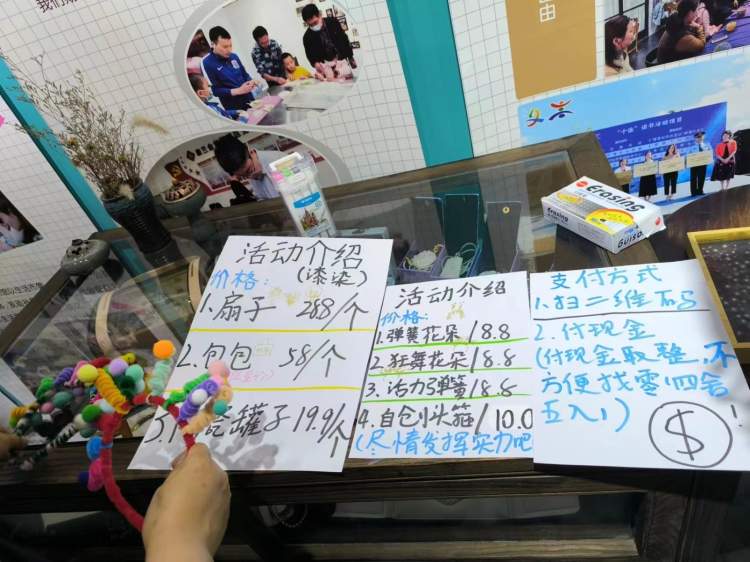 活动介绍
(漆染)
价格:
1.扇子 288/个
2.包包 58/个
瓷罐子 19.9/个
活动介绍
价格:
1.弹簧花朵/8.8
2.狂舞花朵/8.8
3.活力弹簧/8.8
4.自创头箍/10.0
(尽情发挥实力吧
支付方式
1.扫二维码
2.付现金
(付现金取整,不
方便找零,四舍
五入!)
$!
Erasing
Guiso
由